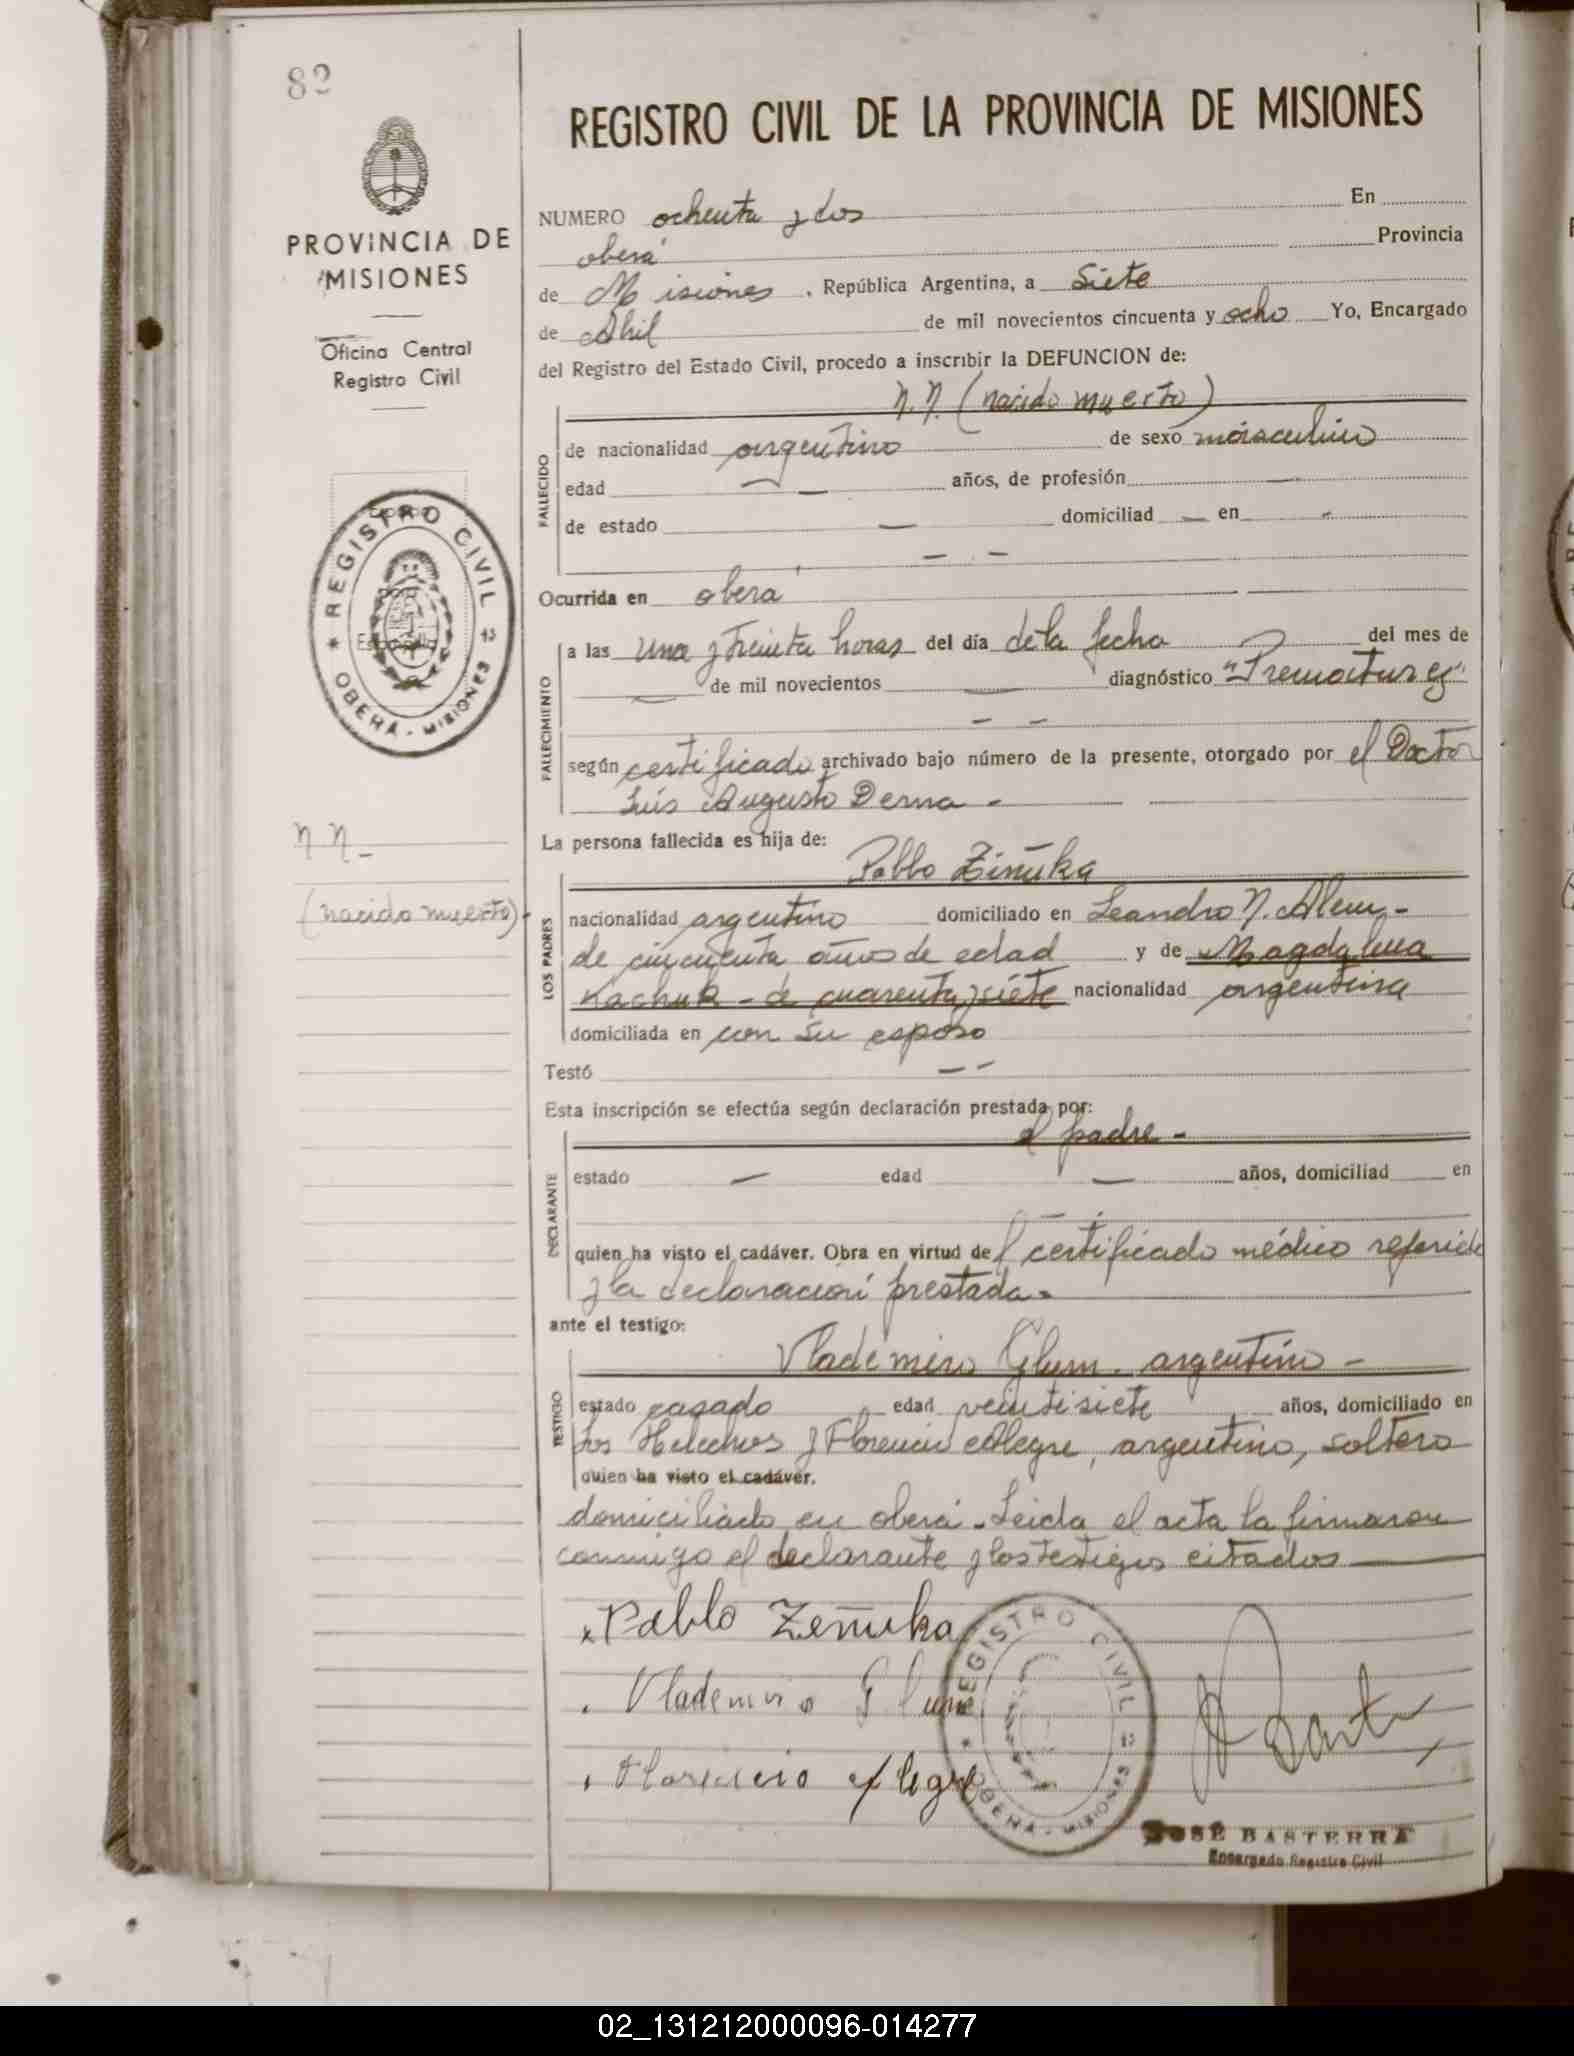 82
PROVINCIA DE
MISIONES
Oficina Central
Registro Civil
REGISTRO CIVIL
OBERÁ - MISIONES
N N -
(nacido muerto)-
REGISTRO CIVIL DE LA PROVINCIA DE MISIONES
NUMERO ochenta y dos En
oberá Provincia
de Misiones . República Argentina, a Siete
de Abril de mil novecientos cincuenta y ocho Yo, Encargado
del Registro del Estado Civil, procedo a inscribir la DEFUNCION de:
N.N. (nacido muerto)
FALLECIDO
de nacionalidad argentino de sexo masculino
edad — — años, de profesión —
de estado — domiciliad — en -
— —
Ocurrida en oberá
FALLECIMIENTO
a las una y treinta horas del día de la fecha del mes de
— de mil novecientos — diagnóstico "Prematurez"
— —
según certificado archivado bajo número de la presente, otorgado por el Doctor
Luis Augusto Derna -
La persona fallecida es hija de:
Pablo Ziñuka
LOS PADRES
nacionalidad argentino domiciliado en Leandro N. Alem -
de cincuenta años de edad y de Magdalena
Kachuk - de cuarenta y siete nacionalidad argentina
domiciliada en con su esposo
Testó — -
Esta inscripción se efectúa según declaración prestada por:
el padre -
DECLARANTE
estado — edad — años, domiciliad en
— -
quien ha visto el cadáver. Obra en virtud del certificado médico referido
y la declaración prestada.
ante el testigo:
Vlademiro Glum. argentino -
TESTIGO
estado casado edad veintisiete años, domiciliado en
Los Helechos y Florencio Alegre, argentino, soltero
quien ha visto el cadáver.
domiciliado en oberá - Leida el acta la firmaron
conmigo el declarante y los testigos citados
x Pablo Zeñuka
. Vlademiro Glum
. Florencio Alegre
REGISTRO CIVIL
OBERÁ - MISIONES
JOSÉ BASTERRA
Encargado Registro Civil
02_131212000096-014277